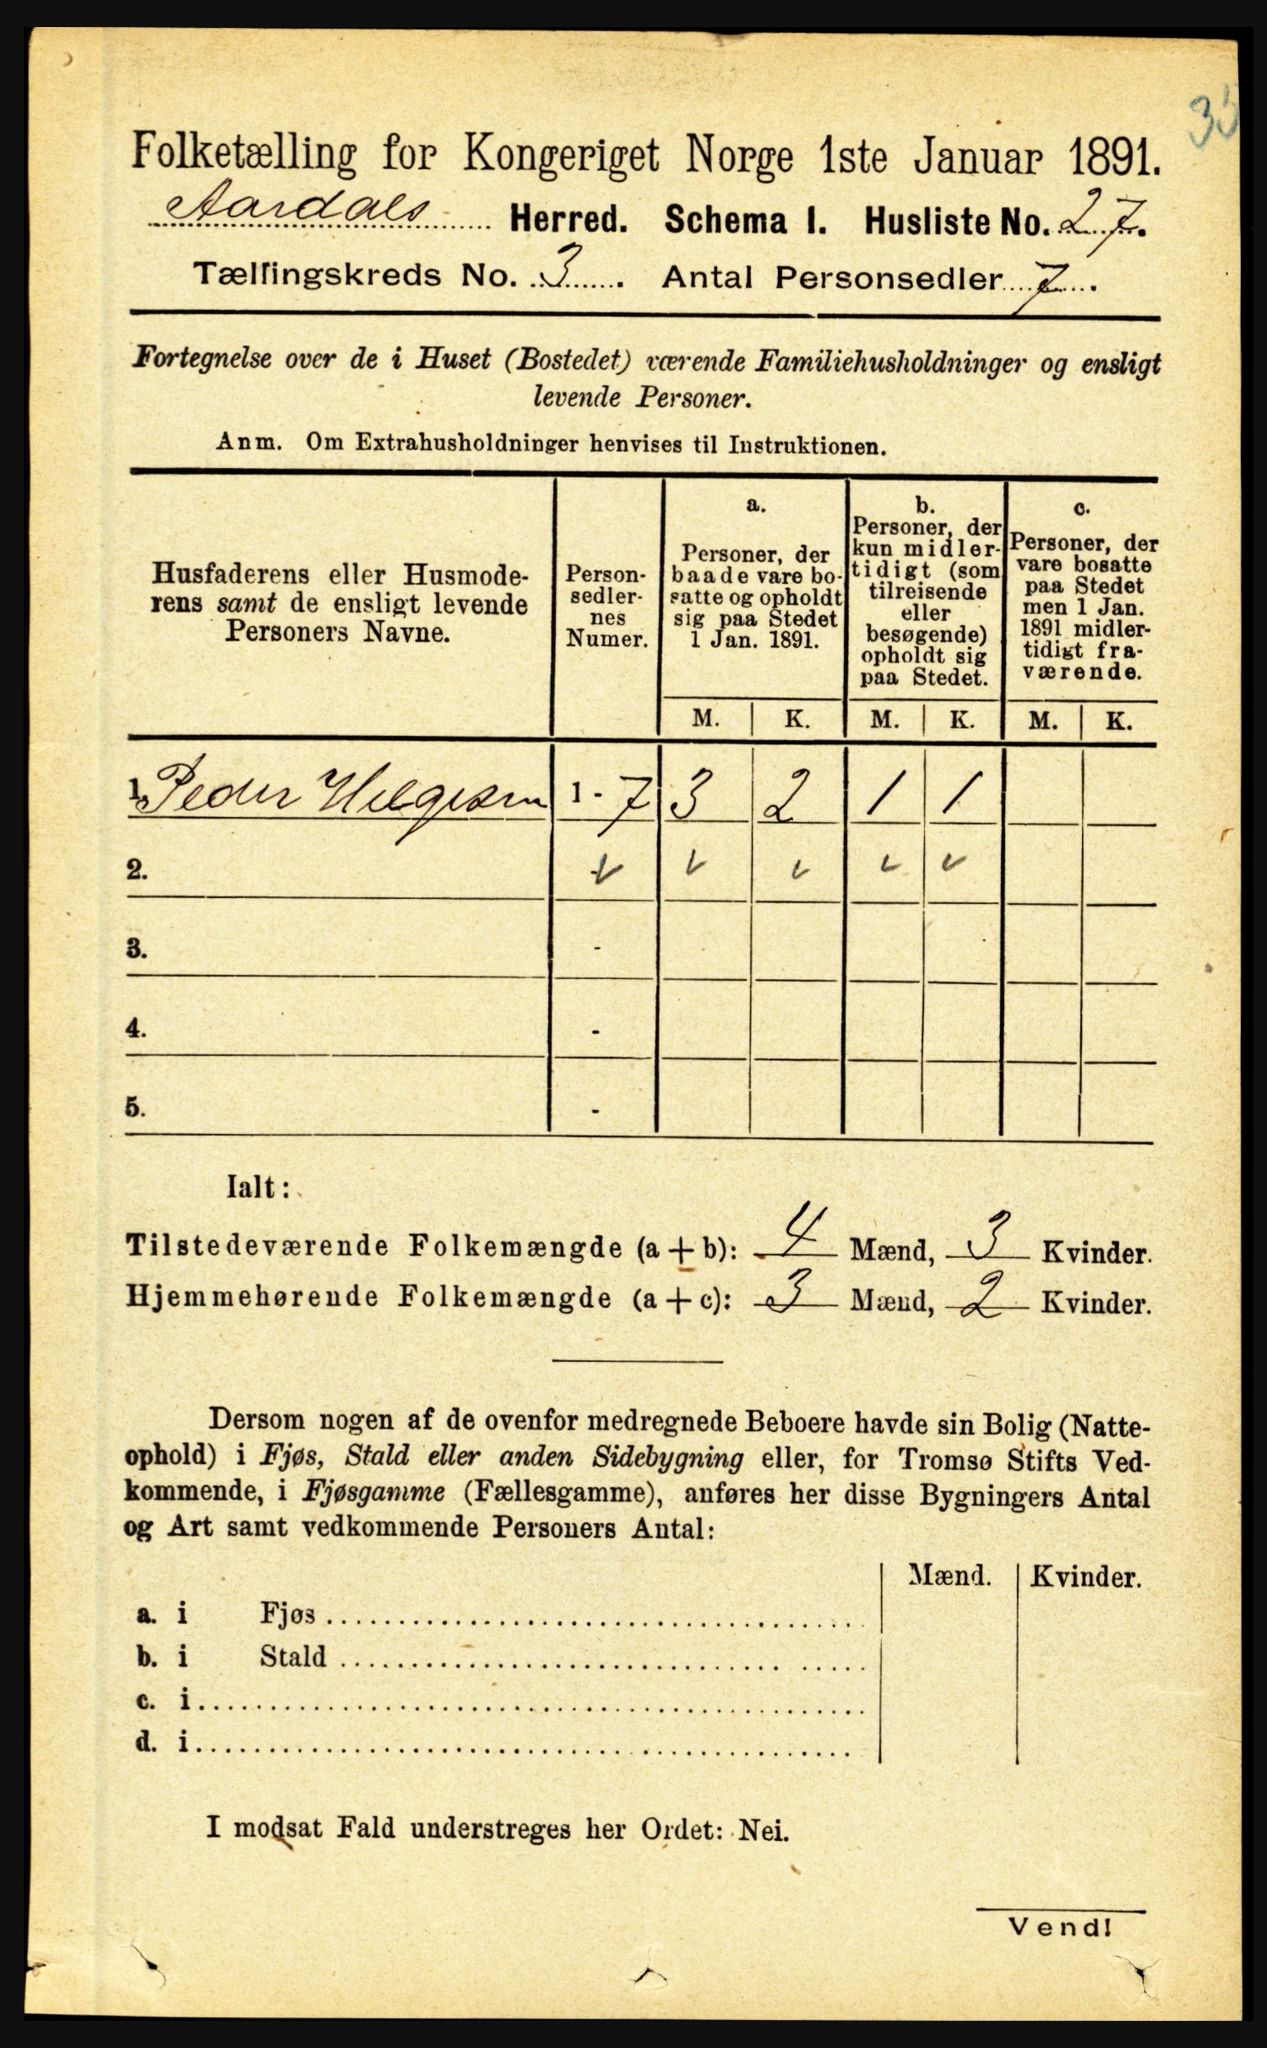 Folketælling for Kongeriget Norge 1ste Januar 1891.
Aardals Herred. Schema I. Husliste No. 27.
Tællingskreds No. 3. Antal Personsedler 7.
Fortegnelse over de i Huset (Bostedet) værende Familiehusholdninger og ensligt
levende Personer.
Anm. Om Extrahusholdninger henvises til Instruktionen.
Husfaderens eller Husmode-
rens samt de ensligt levende
Personers Navne.
Person-
sedler-
nes
Numer.
a.
Personer, der
baade vare bo-
satte og opholdt
sig paa Stedet
1 Jan. 1891.
b.
Personer, der
kun midler-
tidigt (som
tilreisende
eller
besøgende)
opholdt sig
paa Stedet.
c.
Personer, der
vare bosatte
paa Stedet
men 1 Jan.
1891 midler-
tidigt fra-
værende.
M. K. M. K. M. K.
1. Peder Helgesen 1 - 7 3 2 1 1
2.
3. -
4. -
5. -
Ialt:
Tilstedeværende Folkemængde (a + b): 4 Mænd, 3 Kvinder.
Hjemmehørende Folkemængde (a + c): 3 Mænd, 2 Kvinder.
Dersom nogen af de ovenfor medregnede Beboere havde sin Bolig (Natte-
ophold) i Fjøs, Stald eller anden Sidebygning eller, for Tromsø Stifts Ved-
kommende, i Fjøsgamme (Fællesgamme), anføres her disse Bygningers Antal
og Art samt vedkommende Personers Antal:
Mænd. Kvinder.
a. i Fjøs
b. i Stald
c. i
d. i
I modsat Fald understreges her Ordet: Nei.
Vend!